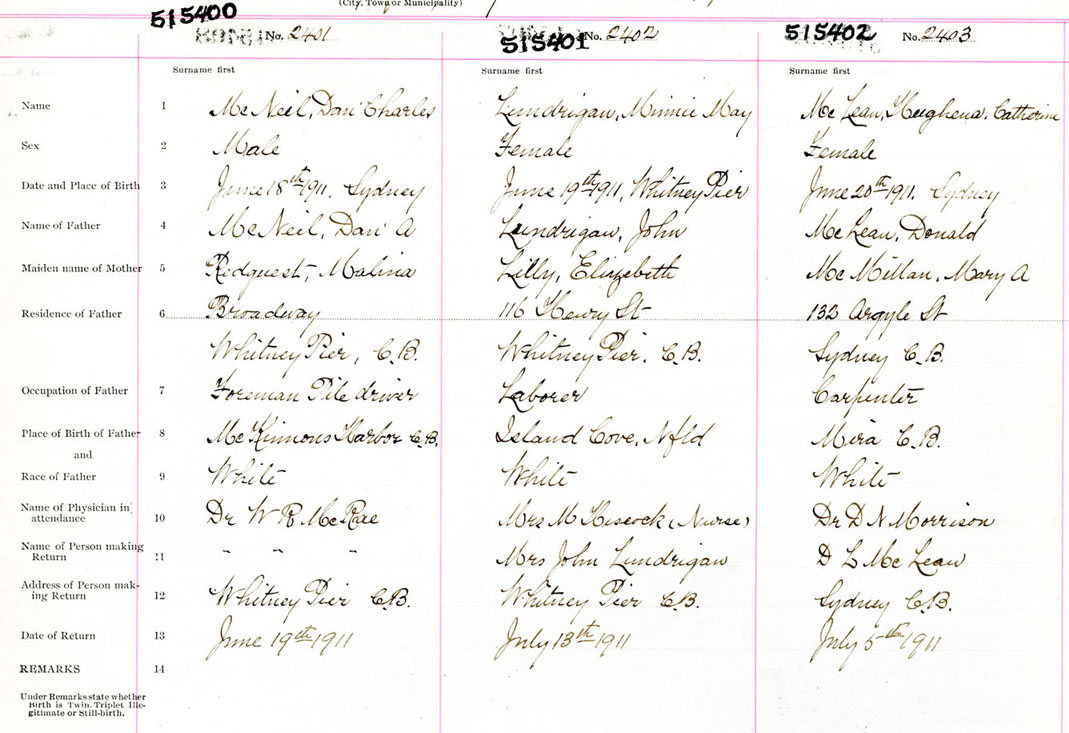 (City, Town or Municipality)
515400 No. 2401
515401 No. 2402
515402 No. 2403
Surname first Surname first Surname first
Name 1 McNeil, Dan Charles Lundrigan, Minnie May McLean, Hughena, Catherine
Sex 2 Male Female Female
Date and Place of Birth 3 June 18th 1911, Sydney June 19th 1911, Whitney Pier June 20th 1911, Sydney
Name of Father 4 McNeil, Dan A Lundrigan, John McLean, Donald
Maiden name of Mother 5 Redquest, Malina Lilly, Elizebeth McMillan, Mary A
Residence of Father 6 Broadway 116 Henry St 132 Argyle St
Whitney Pier, C.B. Whitney Pier, C.B. Sydney C.B.
Occupation of Father 7 Foreman Pile driver Laborer Carpenter
Place of Birth of Father 8 McKinnons Harbor C.B. Island Cove, Nfld Mira C.B.
and
Race of Father 9 White White White
Name of Physician in
attendance 10 Dr W R McRae Mrs M Hiscock (Nurse) Dr D N Morrison
Name of Person making
Return 11 " " " Mrs John Lundrigan D L McLean
Address of Person mak-
ing Return 12 Whitney Pier C.B. Whitney Pier C.B. Sydney C.B.
Date of Return 13 June 19th 1911 July 13th 1911 July 5th 1911
REMARKS 14
Under Remarks state whether
Birth is Twin, Triplet Ille-
gitimate or Still-birth.